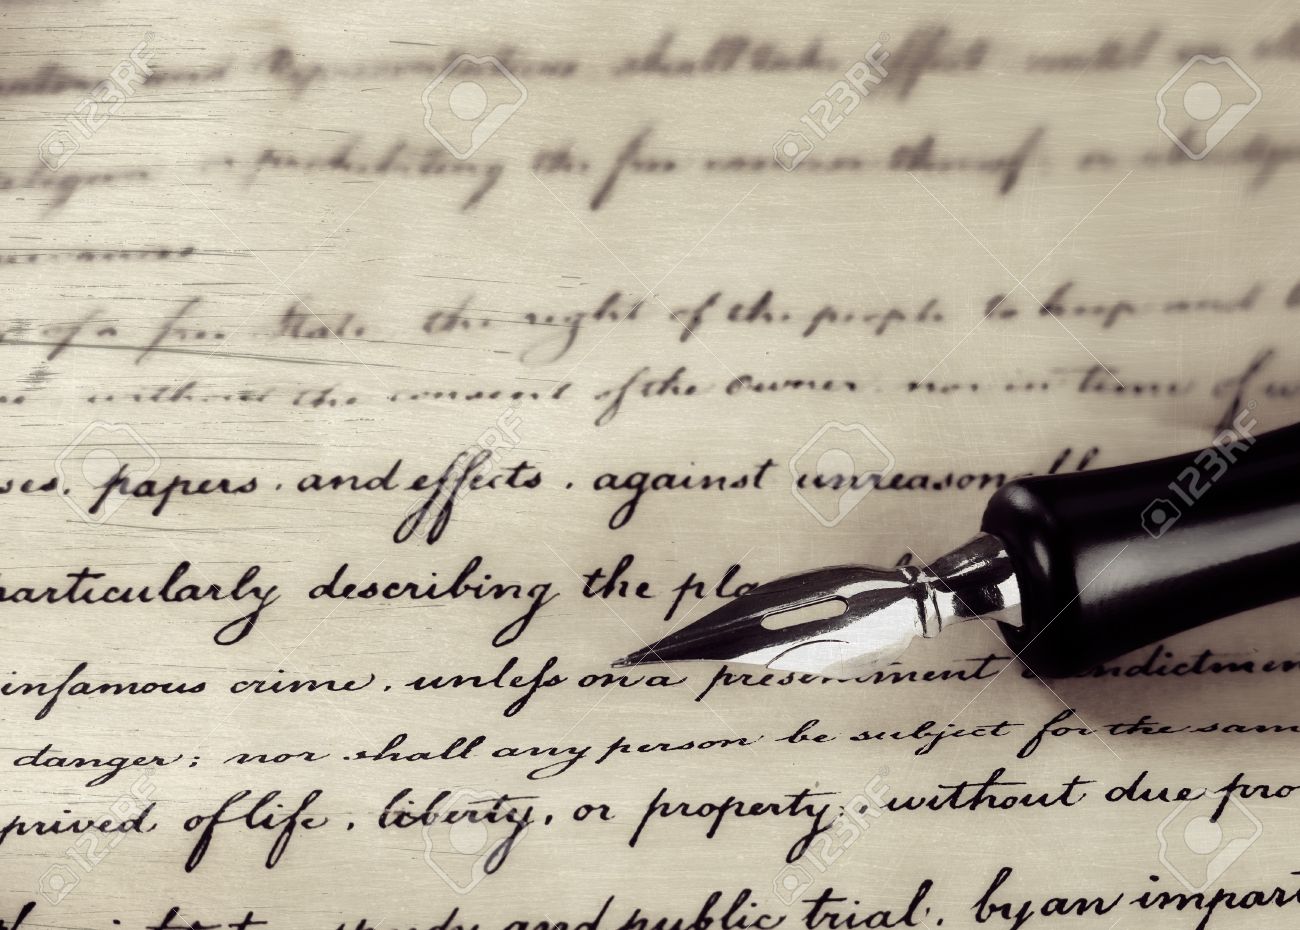 and Representatives shall take effect until
prohibiting the free exercise thereof, or
grievances
of a free State, the right of the people to keep and
without the consent of the owner, nor in time of
ses, papers, and effects, against unreason
particularly describing the pla
infamous crime, unleſs on a presentment indictmen
danger; nor shall any person be subject for the sam
prived of life, liberty, or property, without due pro
speedy and public trial, by an impart
123RF